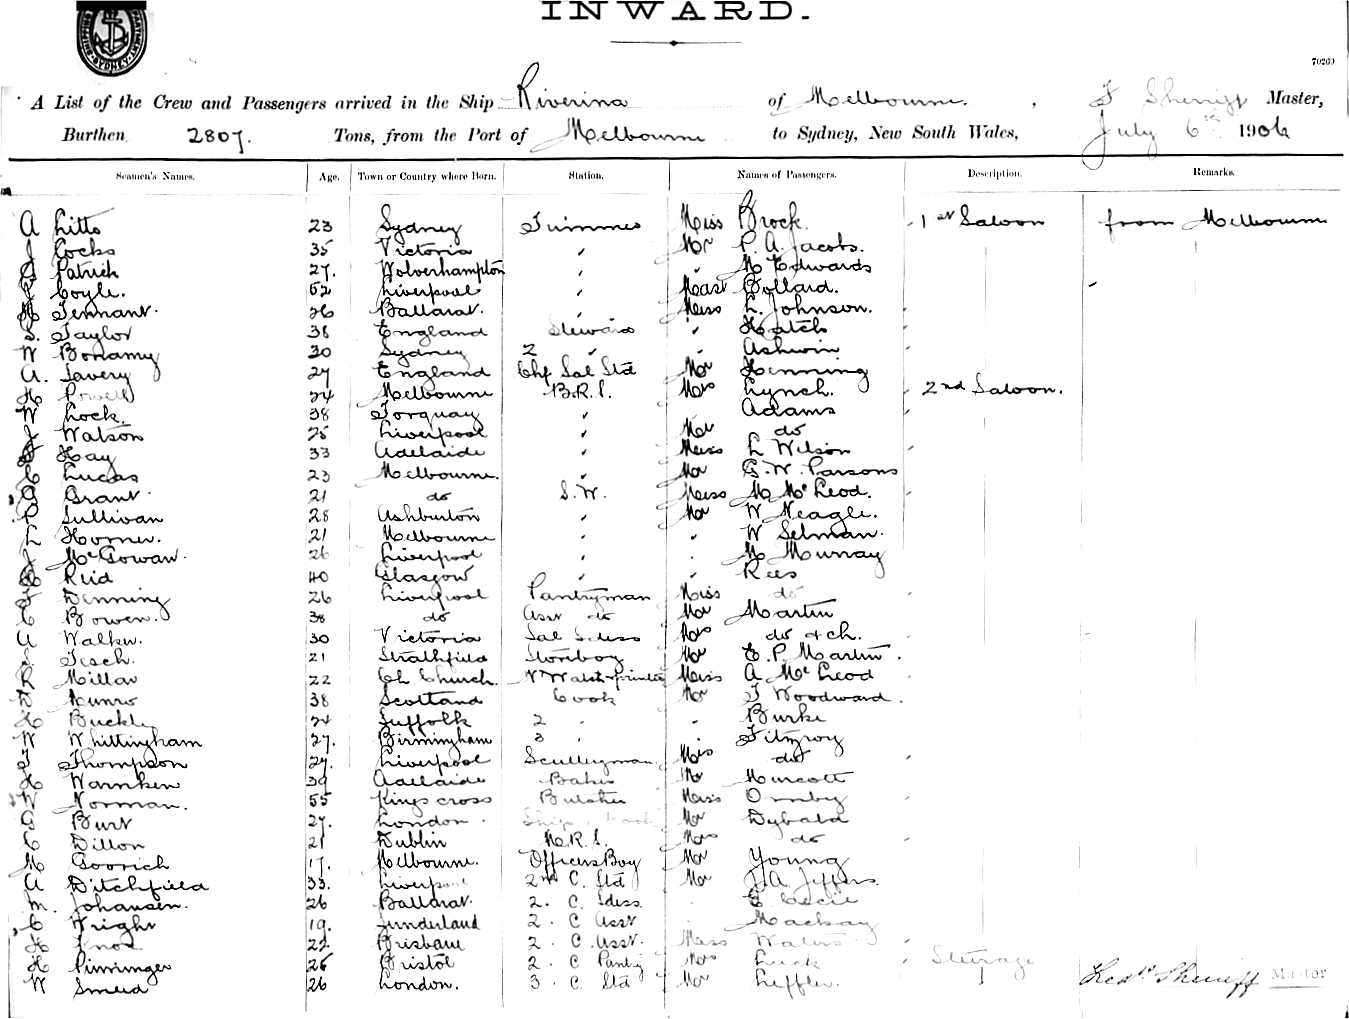 INWARD.
70269
A List of the Crew and Passengers arrived in the Ship Riverina of Melbourne, Sheriff Master,
Burthen 2807. Tons, from the Port of Melbourne to Sydney, New South Wales, July 6th 1906
Seamen's Names. Age. Town or Country where Born. Station. Names of Passengers. Description. Remarks.
A 23 Sydney Miss Brock. 1st Saloon from Melbourne
J Cocks 35 Victoria " Mr Jacobs.
Patrick 27. Wolverhampton " " Edwards
Coyle. 52 Liverpool " Mast Bollard.
H Tennant. Ballarat. " Miss L. Johnson.
S. Taylor 38 England Steward " Hatch
W Bonamy 30 Sydney 2 " " Ashwin
A. Savery 27 England Chf Sal Std Mr Henning
H Powell 24 Melbourne B.R.S. Mrs Lynch. 2nd Saloon.
W Lock. 38 Torquay " Adams
Watson 25 Liverpool " Mr do
Hay 33 Adelaide " Miss L Wilson
Lucas 23 Melbourne. " Mr G. W. Parsons
Grant 21 do S. W. Miss M McLeod.
Sullivan 28 Ashburton " Mr W Neagle.
Horner. 21 Melbourne " " W Selman.
McGowan. 26 Liverpool " " M Murray
Reid 40 Glasgow " " Rees
Denning 26 Liverpool Pantryman Miss do
C Bowen. 38 do Asst do Mr Martin
A Walker. 30 Victoria Sal Sdess Mrs do & ch.
Tesch. 21 Strathfield Storeboy Mr E. P. Martin.
R Millar 22 Ch Church. Miss A McLeod
Munro 38 Scotland Cook Mr J Woodward.
H Buckley 24 Suffolk 2 " " Burke
W Whittingham 27. Birmingham 3 " " Fitzroy
T Thompson 27. Liverpool Scullyman Mrs do
H Warnken 39 Adelaide Baker Mr Murcott
W Norman. 55 Kings cross Butcher Miss Ormby
Burt 27. London. Ships Cook Mr Dybala
C Dillon 21 Dublin M.R.S. Mrs do
M Goodrich 17. Melbourne. Officers Boy Mr Young
A Ditchfield 33. Liverpool 2nd C. Std Mr J. A. Jeffers.
M. Johansen. 26 Ballarat. 2. C. Sdess. " E Cecil
C Wright 19. Sunderland 2. C Asst " Mackay
H Knox 22 Brisbane 2. C. Asst. Miss Waters
H Pirringer 26 Bristol 2. C Pantry Mrs Luck Steerage
W Smeid 26 London. 3. C Std Mr Leffler. Fredk Sheriff Master